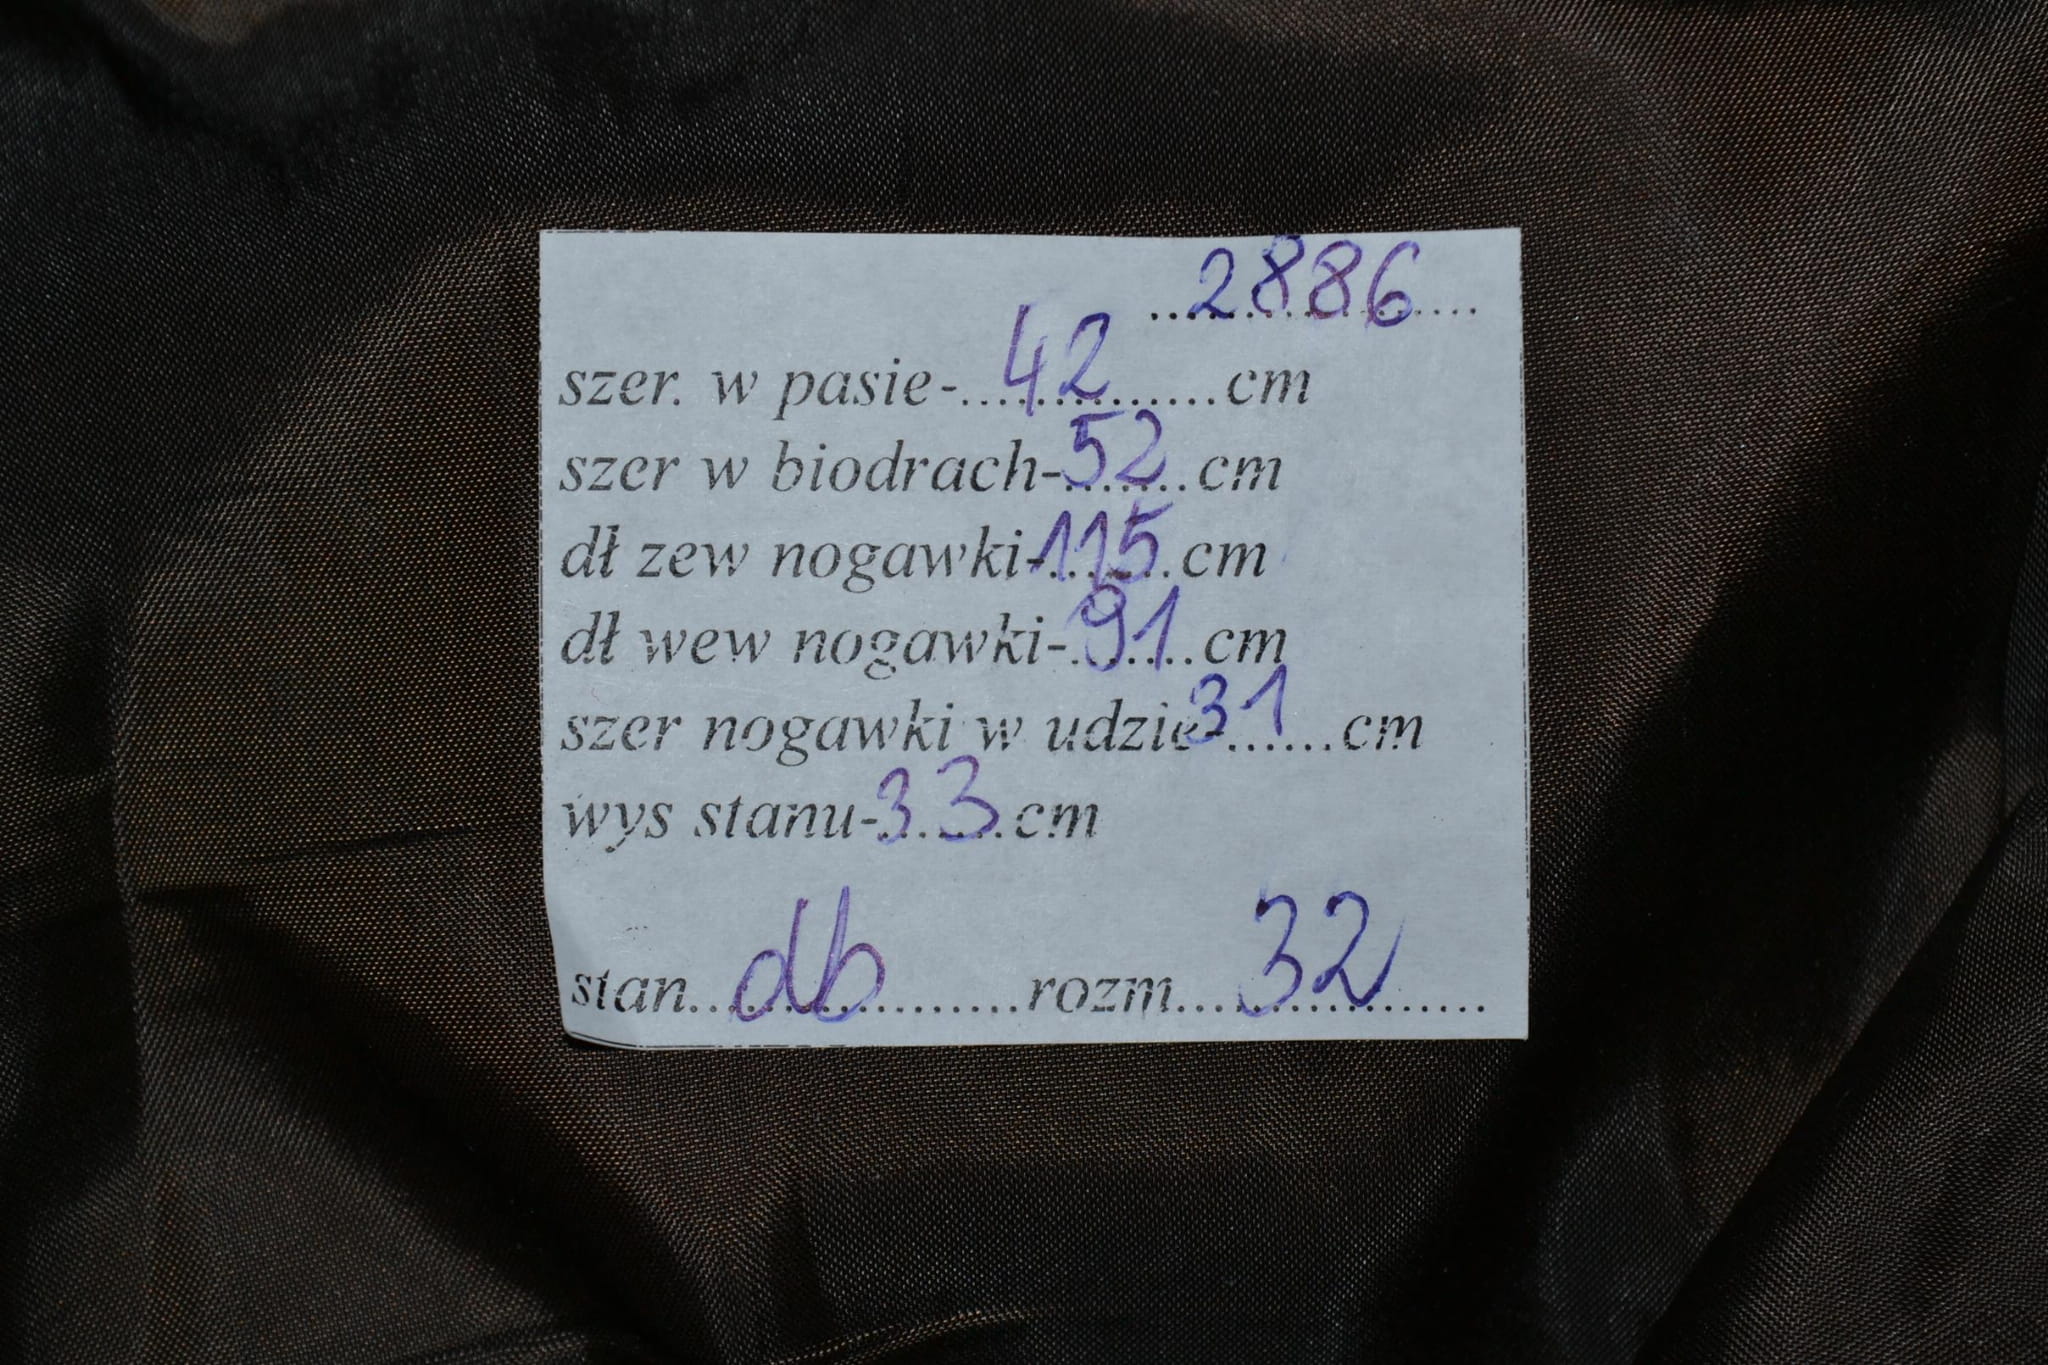 ...2886...
szer. w pasie-...42...cm
szer w biodrach-52...cm
dł zew nogawki-115...cm
dł wew nogawki-91...cm
szer nogawki w udzie-31......cm
wys stanu-33...cm
stan...db...rozm...32...